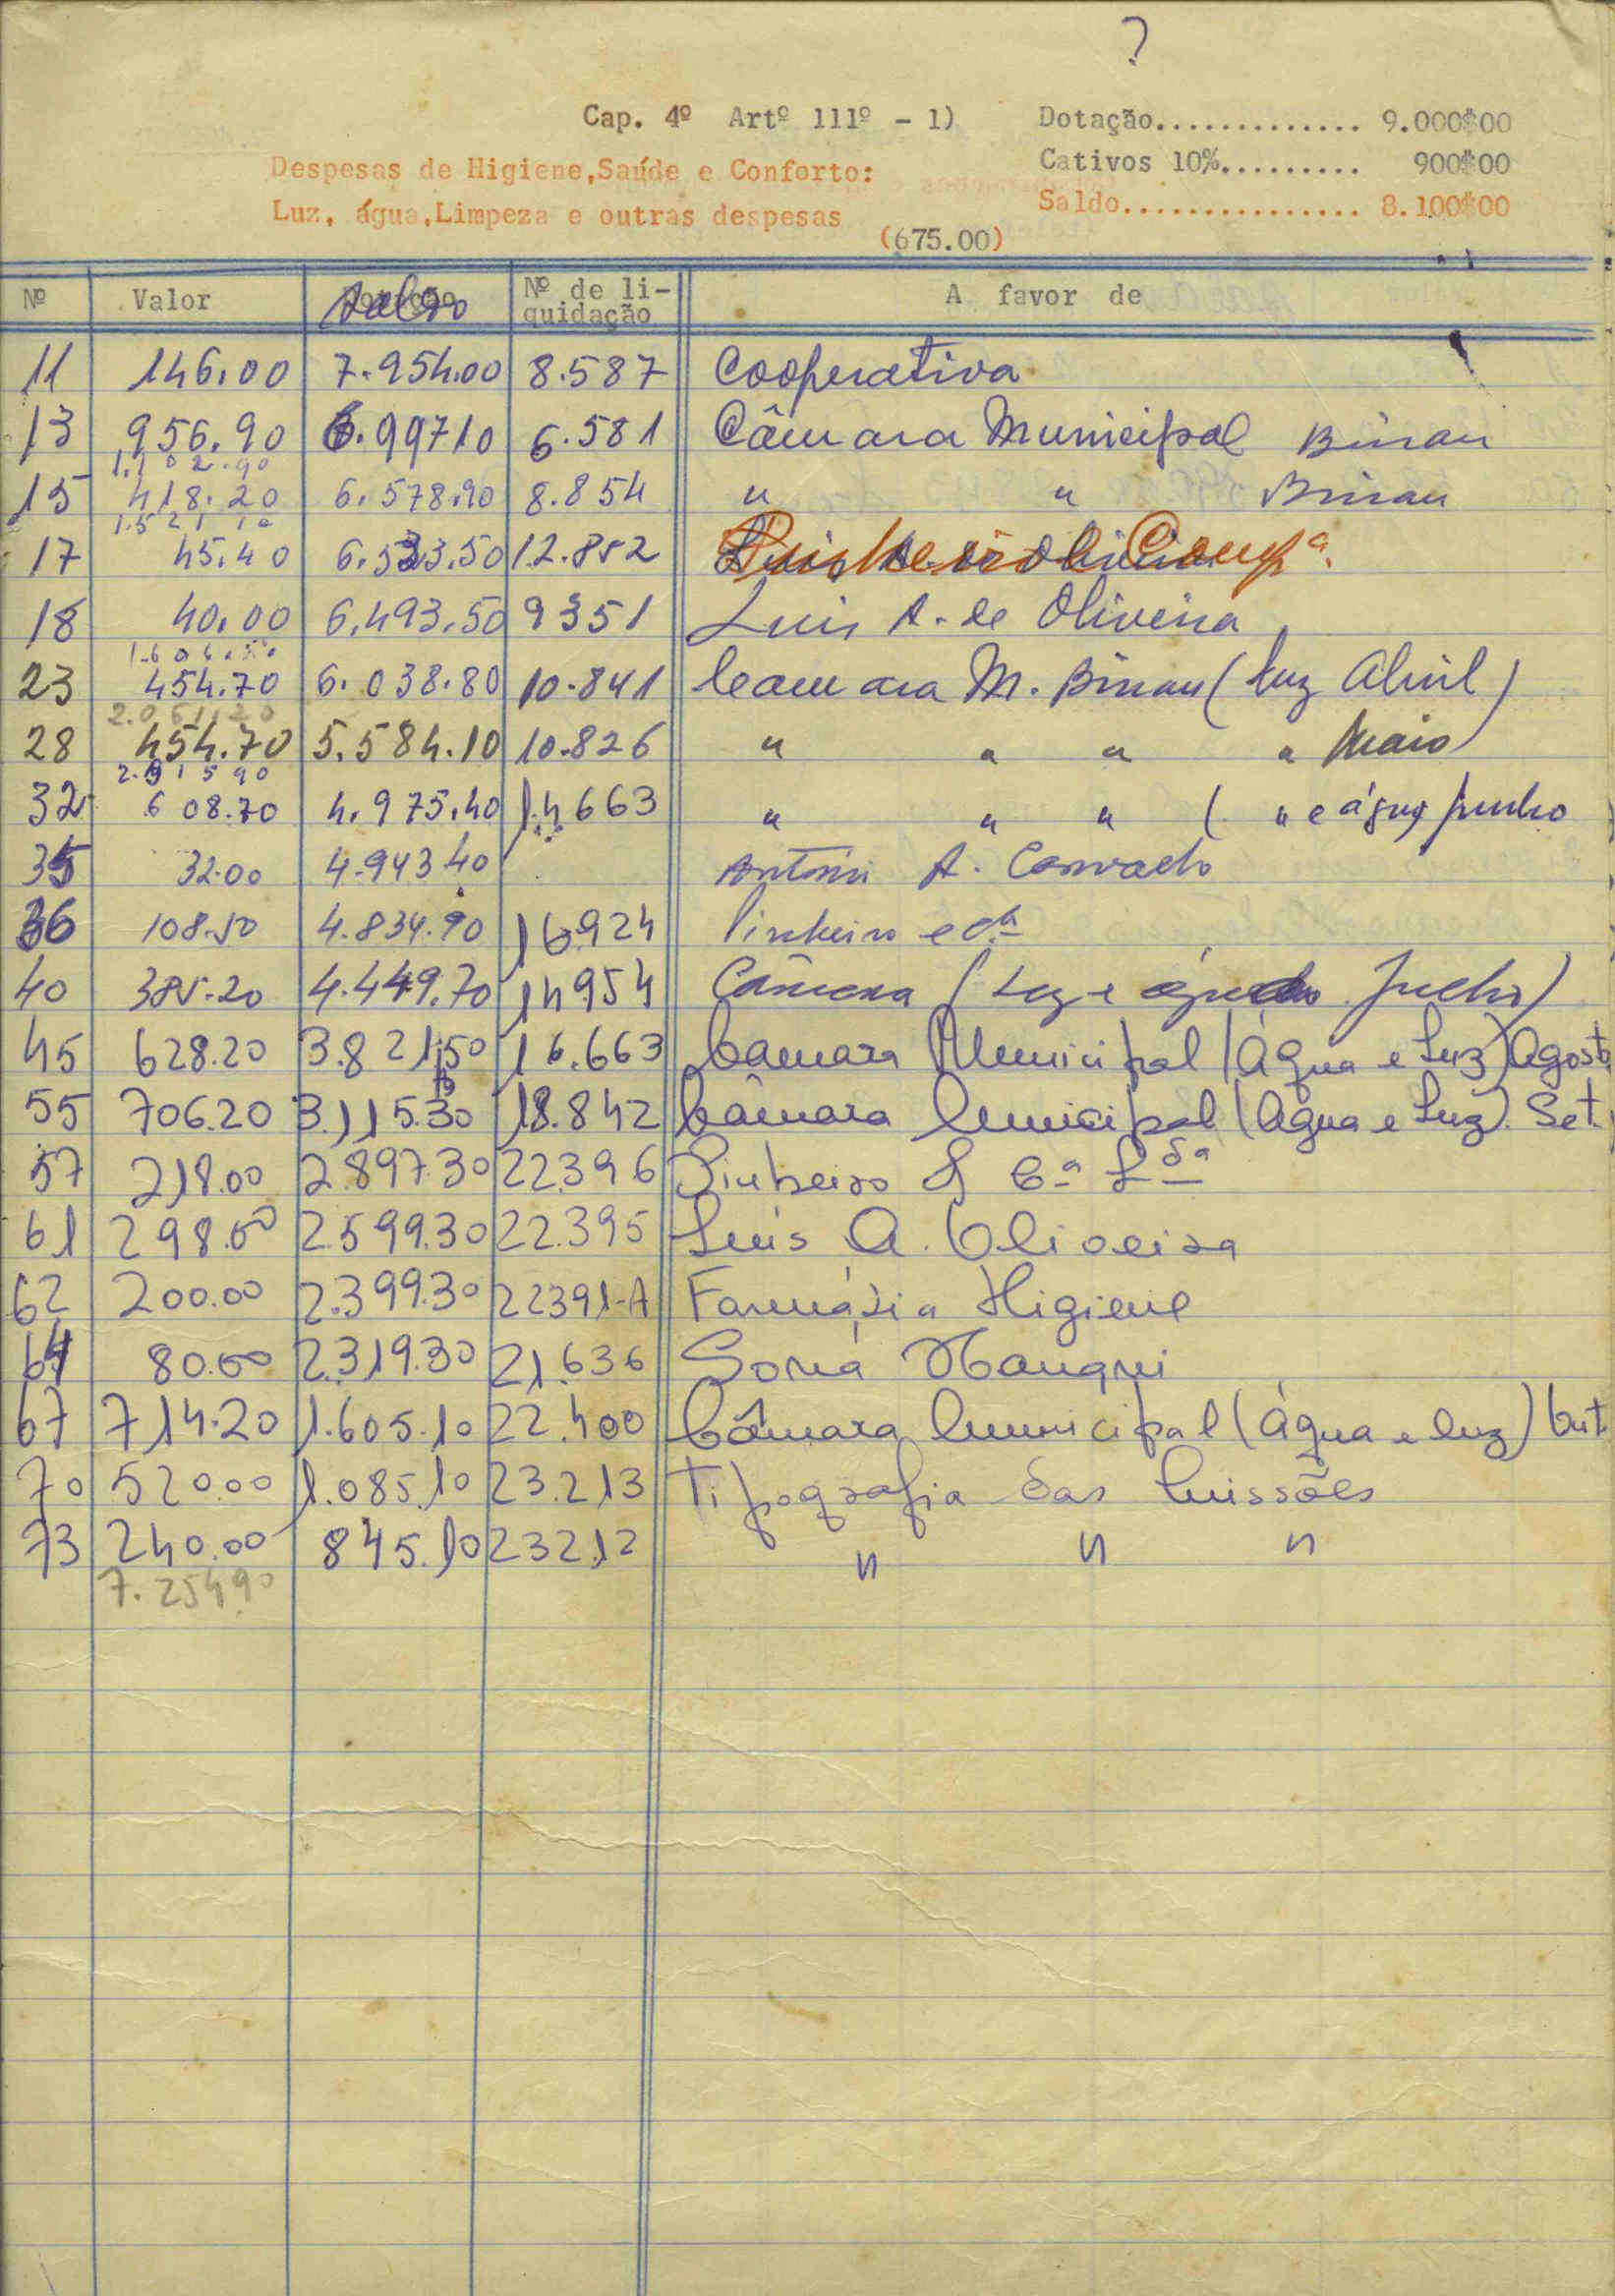 ?
Cap. 4º Artº 111º - 1) Dotação............. 9.000$00
Cativos 10%......... 900$00
Despesas de Higiene,Saúde e Conforto:
Saldo............... 8.100$00
Luz, água,Limpeza e outras despesas
(675.00)
Nº Valor Saldo Nº de li- A favor de
quidação
11 146.00 7.954.00 8.587 Cooperativa
13 956.90 6.99710 6.581 Câmara Municipal Bissau
1.102.90
15 418.20 6.578.90 8.854 " " Bissau
1.521 10
17 45.40 6.533.50 12.852
18 40.00 6.493.50 9351 Luis A. de Oliveira
1.606.50
23 454.70 6.038.80 10.841 Camara M. Bissau (luz Abril)
2.061.20
28 454.70 5.584.10 10.826 " " " " Maio)
2.515 90
32 608.70 4.975.40 14663 " " " ( " e água Junho
35 32.00 4.943 40 António A. Carvalho
36 108.50 4.834.90 16924 Pinheiro e Cª
40 385.20 4.449.70 14954 Câmara (Luz e água Julho)
45 628.20 3.821.50 16.663 Câmara Municipal (Água e Luz) Agosto
55 706.20 3.115.30 18.842 Câmara Municipal (Água e Luz). Set.
57 218.00 2.897.30 22.396 Pinheiro & Cª Ldª
61 298.00 2.599.30 22.395 Luís A. Oliveira
62 200.00 2.399.30 22391-A Farmásia Higiene
64 80.00 2.319.30 21.636 Soná Mangui
67 714.20 1.605.10 22.400 Câmara Municipal (Água e luz) Out.
70 520.00 1.085.10 23.213 Tipografia das Missões
73 240.00 845.10 23212 " " "
7.254.90